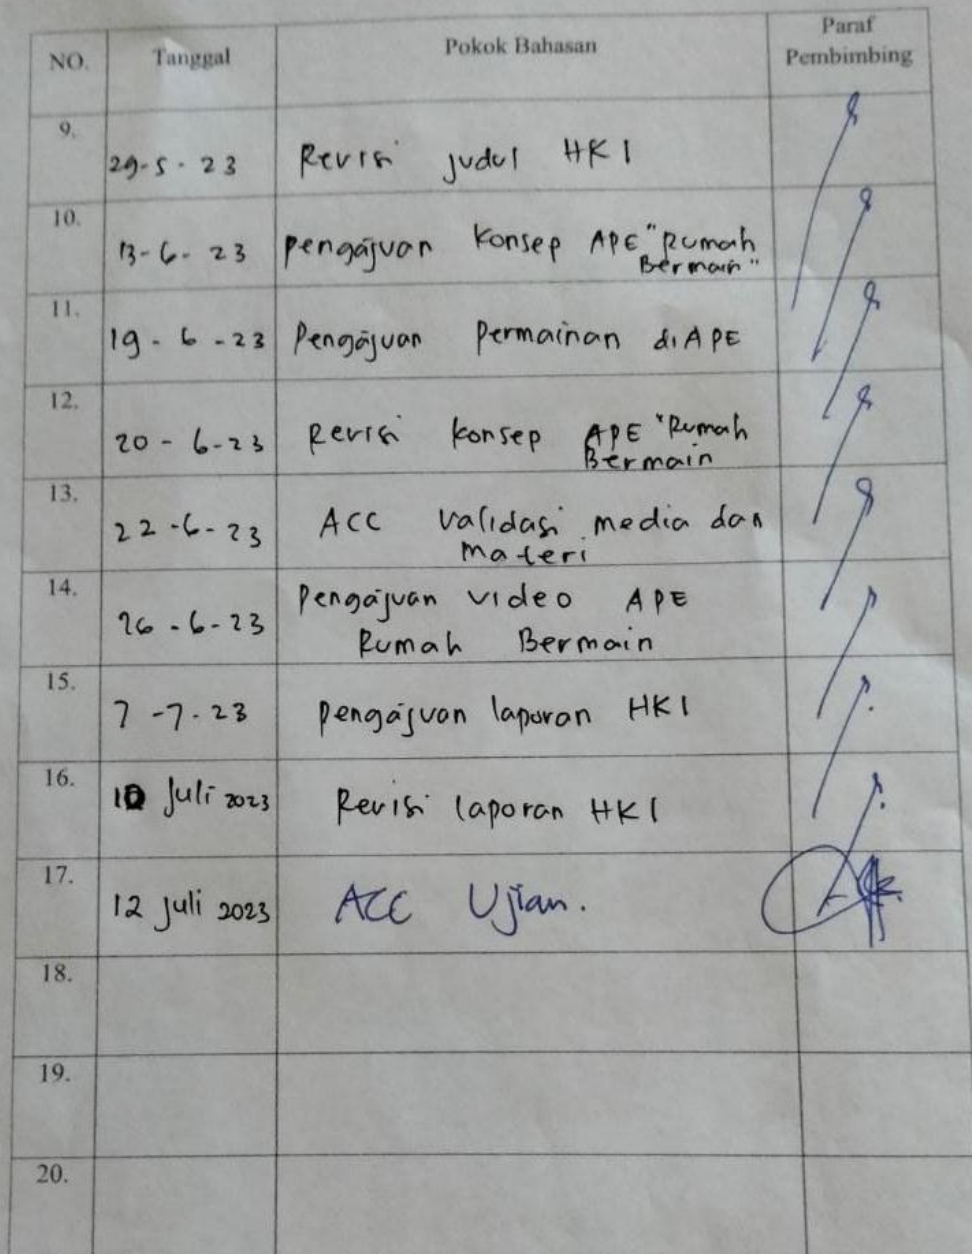 NO. Tanggal Pokok Bahasan Paraf
Pembimbing
9.
29-5-23 Revisi judul HKI
10.
13-6-23 pengajuan konsep APE "Rumah
Bermain"
11.
19-6-23 Pengajuan Permainan di APE
12.
20-6-23 Revisi konsep APE "Rumah
Bermain
13.
22-6-23 ACC validasi media dan
materi
14.
26-6-23 Pengajuan video APE
Rumah Bermain
15.
7-7-23 pengajuan laporan HKI
16.
10 Juli 2023 Revisi laporan HKI
17.
12 juli 2023 ACC Ujian.
18.
19.
20.